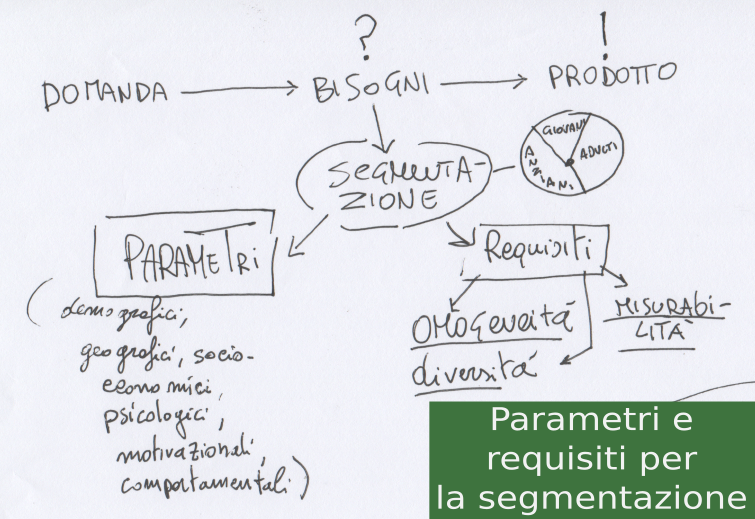 ?
!
DOMANDA
BISOGNI
PRODOTTO
SEGMENTA-
ZIONE
GIOVANI
ADULTI
ANZIANI
PARAMETRI
(demografici,
geografici, socio-
economici,
psicologici,
motivazionali,
comportamentali)
Requisiti
OMOGeneità
diversità
MISURABi-
LITÀ
Parametri e
requisiti per
la segmentazione